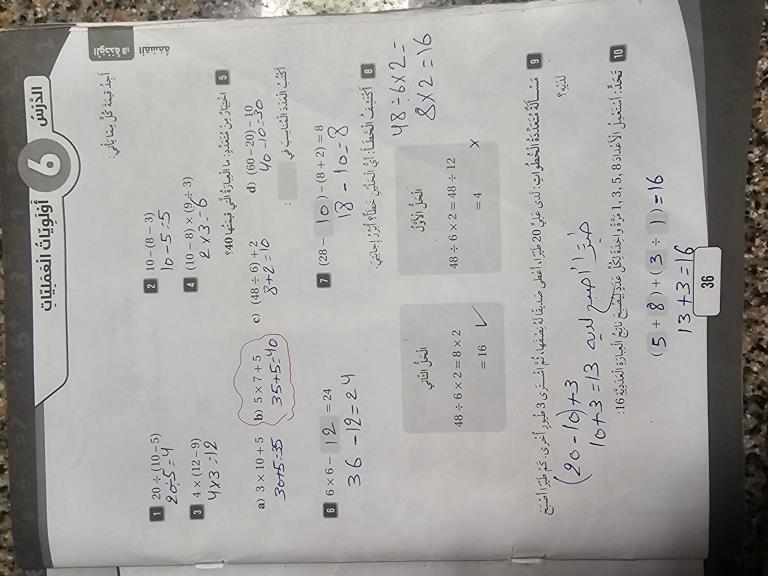 الدَّرْسُ 6 أَوْلَوِيّاتُ الْعَمَلِيّاتِ
الْوَحْدَةُ
الْقِسْمَةُ
أَجِدُ قيمَةَ كُلٍّ مِمّا يَأْتي:
1 20 ÷ (10 – 5)
20÷5=4
2 10 – (8 – 3)
10-5=5
3 4 × (12 – 9)
4×3=12
4 (10 – 8) × (9 ÷ 3)
2×3=6
5 اخْتِيارٌ مِنْ مُتَعَدِّدٍ: ما الْعِبارَةُ الَّتي قيمَتُها 40؟
a) 3 × 10 + 5 b) 5 × 7 + 5 c) (48 ÷ 6) + 2 d) (60 – 20) – 10
30+5=35 35+5=40 8+2=10 40-10=30
أَكْتُبُ الْعَدَدَ الْمُناسِبَ في :
6 6 × 6 – 12 = 24
36-12=24
7 (28 – 10) – (8 + 2) = 8
18-10=8
8 أَكْتَشِفُ الْخَطَأَ: أَيُّ الْحَلَّيْنِ خَطَأٌ؟ أُبَرِّرُ إِجابَتي.
48÷6×2=
8×2=16
الْحَلُّ الْأَوَّلُ
48 ÷ 6 × 2 = 48 ÷ 12
= 4
×
الْحَلُّ الثّاني
48 ÷ 6 × 2 = 8 × 2
= 16
✓
9 مَسْأَلَةٌ مُتَعَدِّدَةُ الْخُطُواتِ: لَدى عَلِيٍّ 20 طَيْرًا، أَعْطى صَديقًا لَهُ نِصْفَها، ثُمَّ اشْتَرى 3 طُيورٍ أُخْرى. كَمْ طَيْرًا أَصْبَحَ
لَدَيْهِ؟
(20-10)+3
10+3=13 طيرًا أصبح لديه
10 تَحَدٍّ: أَسْتَعْمِلُ الْأَعْدادَ 1, 3, 5, 8 مَرَّةً واحِدَةً لِكُلِّ عَدَدٍ لِيُصْبِحَ ناتِجُ الْعِبارَةِ الْعَدَدِيَّةِ 16:
(5 + 8) + (3 ÷ 1) = 16
13+3=16
36